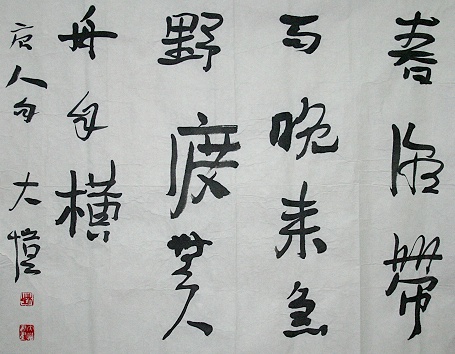 春潮帶
雨晚来急
野渡無人
舟自横
唐人句 大愷